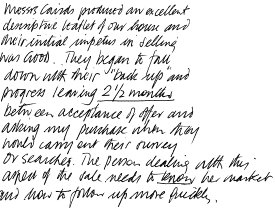 Messrs Cairds produced an excellent
descriptive leaflet of our house and
their initial impetus in selling
was Good. They began to fall
down with their "back up" and
progress leaving 2 1/2 months
between acceptance of offer and
asking my purchase when they
would carry out their survey
or searches. The person dealing with this
aspect of the sale needs to know her market
and how to follow up more quickly.